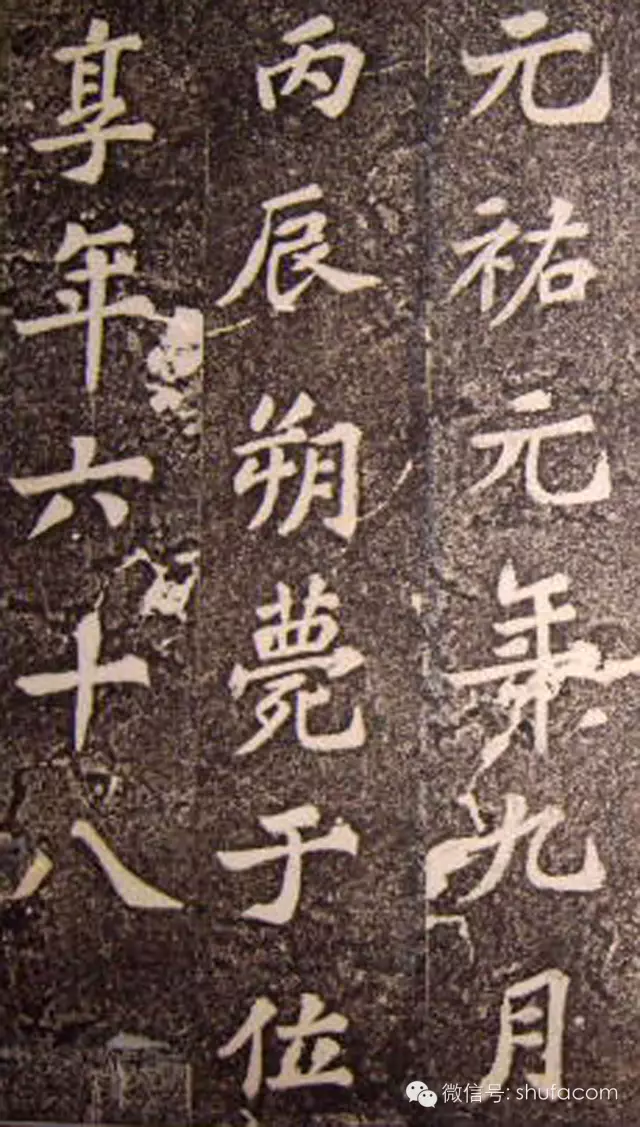 元祐元年九月
丙辰朔薨于位
享年六十八
微信号: shufacom